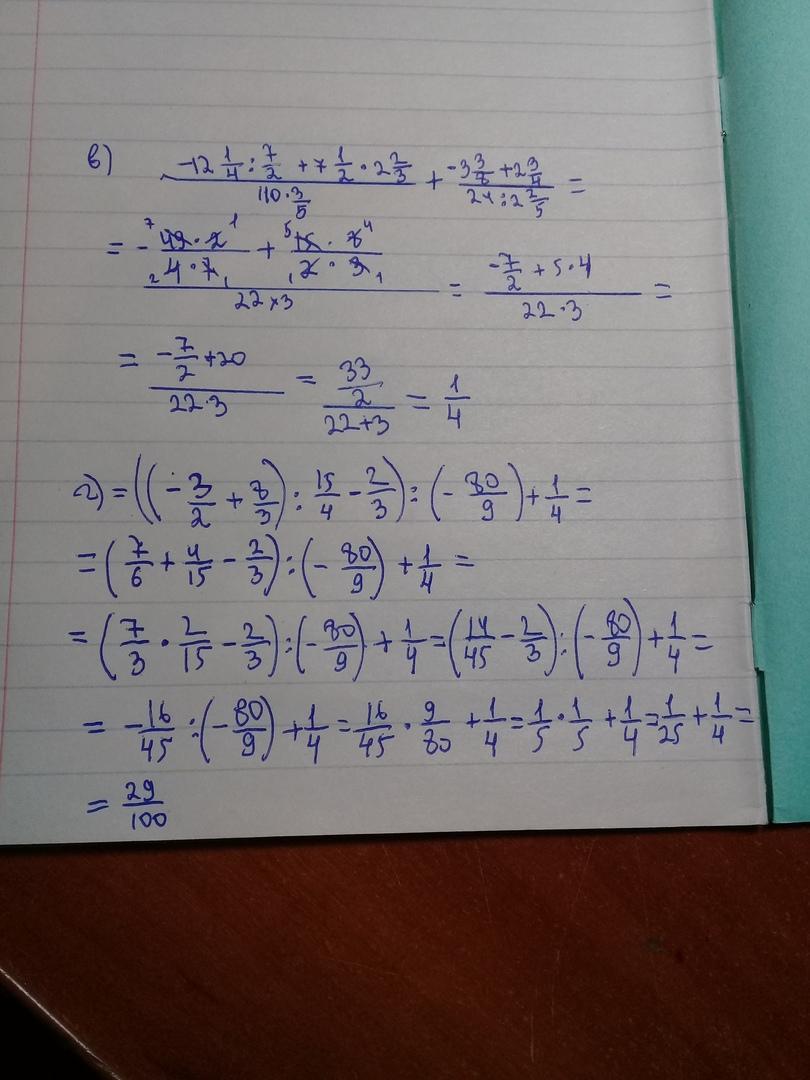 в) (-12 1/4 : 7/2 + 7 1/2 · 2 2/3)/(110 · 3/5) + (-3 3/8 + 2 3/4)/(24 : 2 2/5) =
= (- (49 · 2)/(4 · 7) + (15 · 8)/(2 · 3))/(22 × 3) = (-7/2 + 5 · 4)/(22 · 3) =
= (-7/2 + 20)/(22 · 3) = (33/2)/(22 + 3) = 1/4
г) = ((-3/2 + 8/3) : 15/4 - 2/3) : (-80/9) + 1/4 =
= (7/6 + 4/15 - 2/3) : (-80/9) + 1/4 =
= (7/3 · 2/15 - 2/3) : (-80/9) + 1/4 = (14/45 - 2/3) : (-80/9) + 1/4 =
= -16/45 : (-80/9) + 1/4 = 16/45 · 9/80 + 1/4 = 1/5 · 1/5 + 1/4 = 1/25 + 1/4 =
= 29/100